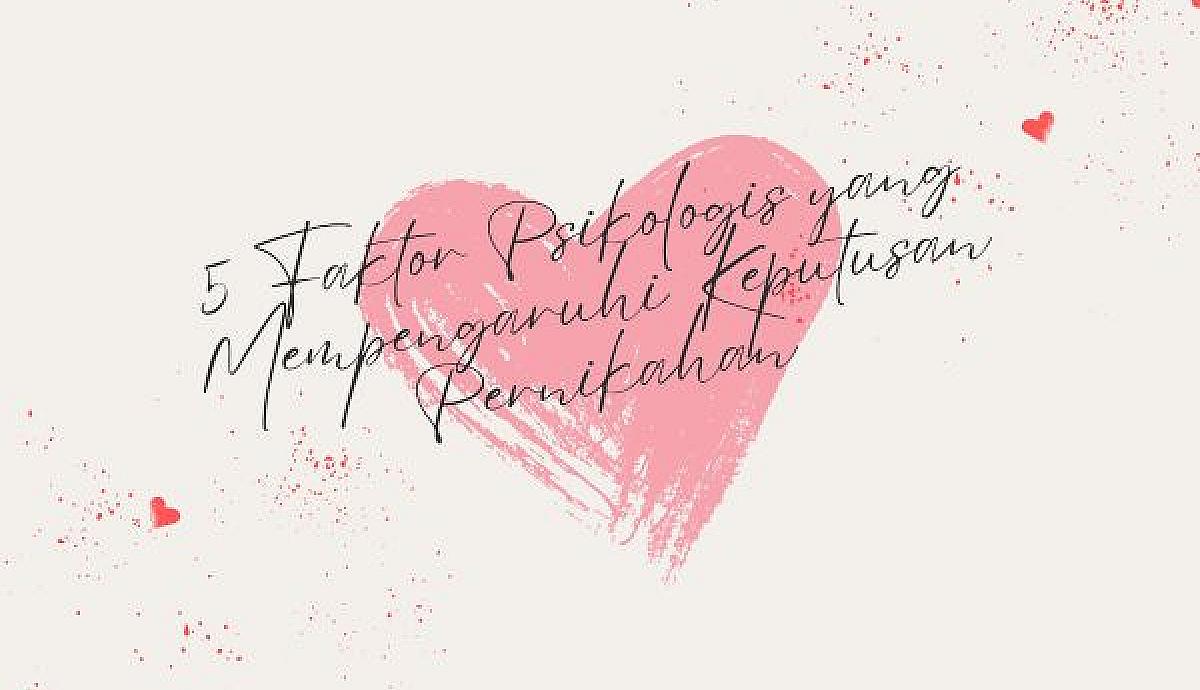 5 Faktor Psikologis yang
Mempengaruhi Keputusan
Pernikahan